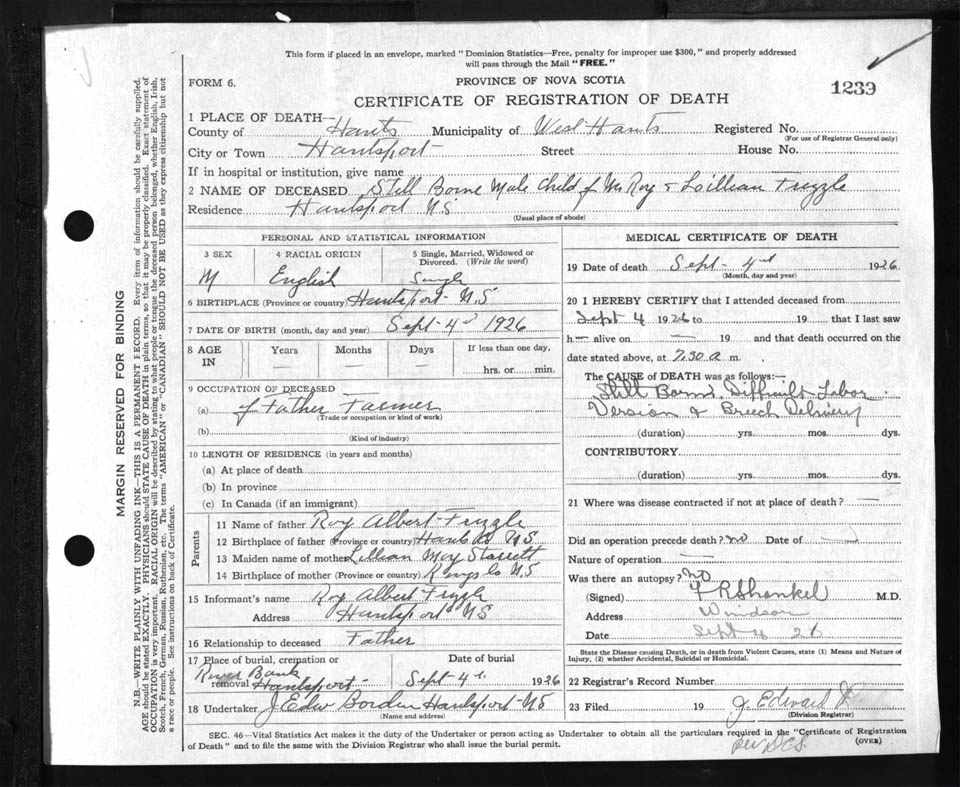 This form if placed in an envelope, marked "Dominion Statistics—Free, penalty for improper use $300," and properly addressed
will pass through the Mail "FREE."
FORM 6.
PROVINCE OF NOVA SCOTIA
1239
CERTIFICATE OF REGISTRATION OF DEATH
1 PLACE OF DEATH—
County of Hants Municipality of West Hants Registered No.
(For use of Registrar General only)
City or Town Hantsport Street House No.
If in hospital or institution, give name
2 NAME OF DECEASED Still Borne Male Child of Mr Roy & Loillian Frizzle
Residence Hantsport N.S
(Usual place of abode)
PERSONAL AND STATISTICAL INFORMATION
3 SEX 4 RACIAL ORIGIN 5 Single, Married, Widowed or
Divorced. (Write the word)
M English Single
6 BIRTHPLACE (Province or country) Hantsport N.S
7 DATE OF BIRTH (month, day and year) Sept 4 1926
8 AGE IN Years Months Days If less than one day,
— — — hrs. or min.
9 OCCUPATION OF DECEASED
(a) of Father Farmer
(Trade or occupation or kind of work)
(b)
(Kind of industry)
10 LENGTH OF RESIDENCE (in years and months)
(a) At place of death
(b) In province
(c) In Canada (if an immigrant)
Parents
11 Name of father Roy Albert Frizzle
12 Birthplace of father (Province or country) Hants Co N.S
13 Maiden name of mother Lillian May Starrett
14 Birthplace of mother (Province or country) Kings Co N.S
15 Informant's name Roy Albert Frizzle
Address Hantsport N.S
16 Relationship to deceased Father
17 Place of burial, cremation or Date of burial
River Bank
removal Hantsport Sept 4 1926
18 Undertaker J Edw Borden Hantsport N.S
(Name and address)
MEDICAL CERTIFICATE OF DEATH
19 Date of death Sept 4 1926
(Month, day and year)
20 I HEREBY CERTIFY that I attended deceased from
Sept 4 1926 to 19 that I last saw
h— alive on — 19 and that death occurred on the
date stated above, at 7.30 a m.
The CAUSE of DEATH was as follows:—
Still Born, Difficult Labor
Version & Breech Delivery
(duration) yrs. mos. dys.
CONTRIBUTORY
(duration) yrs. mos. dys.
21 Where was disease contracted if not at place of death? —
Did an operation precede death? no Date of —
Nature of operation —
Was there an autopsy? no
(Signed) Shankel M.D.
Address Windsor
Date Sept 4 26
State the Disease causing Death, or in death from Violent Causes, state (1) Means and Nature of
Injury, (2) whether Accidental, Suicidal or Homicidal.
22 Registrar's Record Number
23 Filed 19 J. Edward
(Division Registrar)
SEC. 46—Vital Statistics Act makes it the duty of the Undertaker or person acting as Undertaker to obtain all the particulars required in the "Certificate of Registration
of Death" and to file the same with the Division Registrar who shall issue the burial permit.
(OVER)
per DCS
MARGIN RESERVED FOR BINDING
N.B.—WRITE PLAINLY WITH UNFADING INK—THIS IS A PERMANENT RECORD. Every item of information should be carefully supplied.
AGE should be stated EXACTLY. PHYSICIANS should STATE CAUSE OF DEATH in plain terms, so that it may be properly classified. Exact statement of
OCCUPATION is very important. RACIAL ORIGIN will be described by stating to what people or tongue the deceased person belonged, whether English, Irish,
Scotch, French, German, Russian, Ruthenian, etc. The terms "AMERICAN" or "CANADIAN" SHOULD NOT BE USED as they express citizenship but not
a race or people. See instructions on back of Certificate.